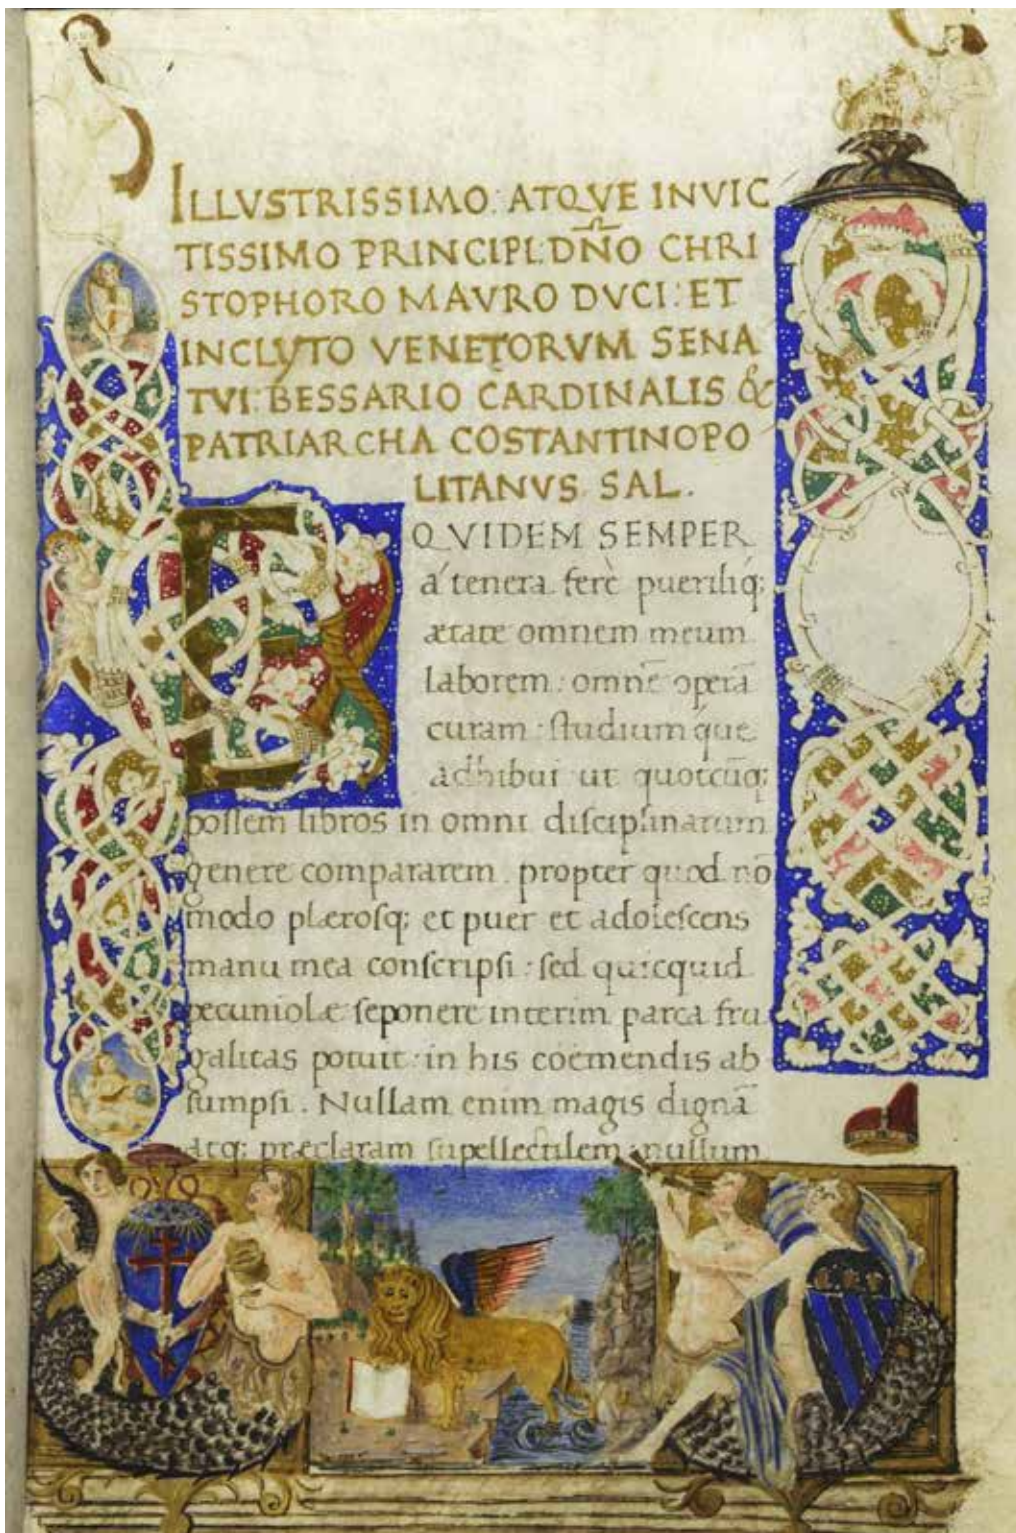 ILLVSTRISSIMO: ATQVE INVIC
TISSIMO PRINCIPI: DÑO CHRI
STOPHORO MAVRO DVCI: ET
INCLYTO VENETORVM SENA
TVI: BESSARIO CARDINALIS &
PATRIARCHA COSTANTINOPO
LITANVS. SAL.
EQVIDEM SEMPER
á tenera ferè pueriliq;
ætate omnem meum
laborem: omnē operā
curam: studium'que
adhibui ut quotcūq;
possem libros in omni disciplinarum
genere compararem. propter quod nō
modo plærosq; et puer et adolescens
manu mea conscripsi: sed quicquid
pecuniolæ seponere interim parca fru
galitas potuit: in his coemendis ab
sumpsi. Nullam enim magis dignā
atq; præclaram supellectilem: nullum